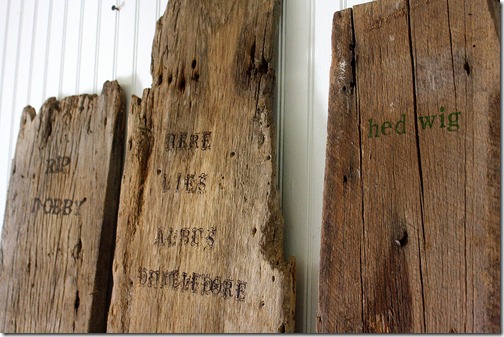 RIP
DOBBY
HERE
LIES
ALBUS
DUMBLEDORE
hed wig